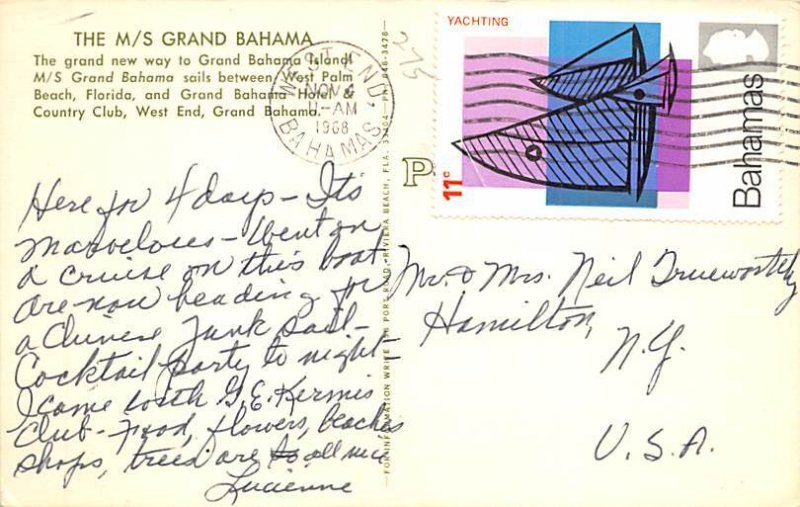 THE M/S GRAND BAHAMA
The grand new way to Grand Bahama Island!
M/S Grand Bahama sails between West Palm
Beach, Florida, and Grand Bahama Hotel &
Country Club, West End, Grand Bahama.
WEST END,
NOV 4
11-AM
1968
BAHAMAS
275
P
YACHTING
11c
Bahamas
Here for 4 days - Its
marvelous - Went on
a cruise on this boat
are now heading for
a Chinese Junk Sail -
Cocktail party to night -
I came with G.E. Kermis
Club - Food, flowers, beaches
shops, trees are all nice
Lucienne
Mr. & Mrs. Neil Trueworthy
Hamilton,
N.Y.
U.S.A.
FOR INFORMATION WRITE PORT ROAD, RIVIERA BEACH, FLA. 33404 — PH 848-3478